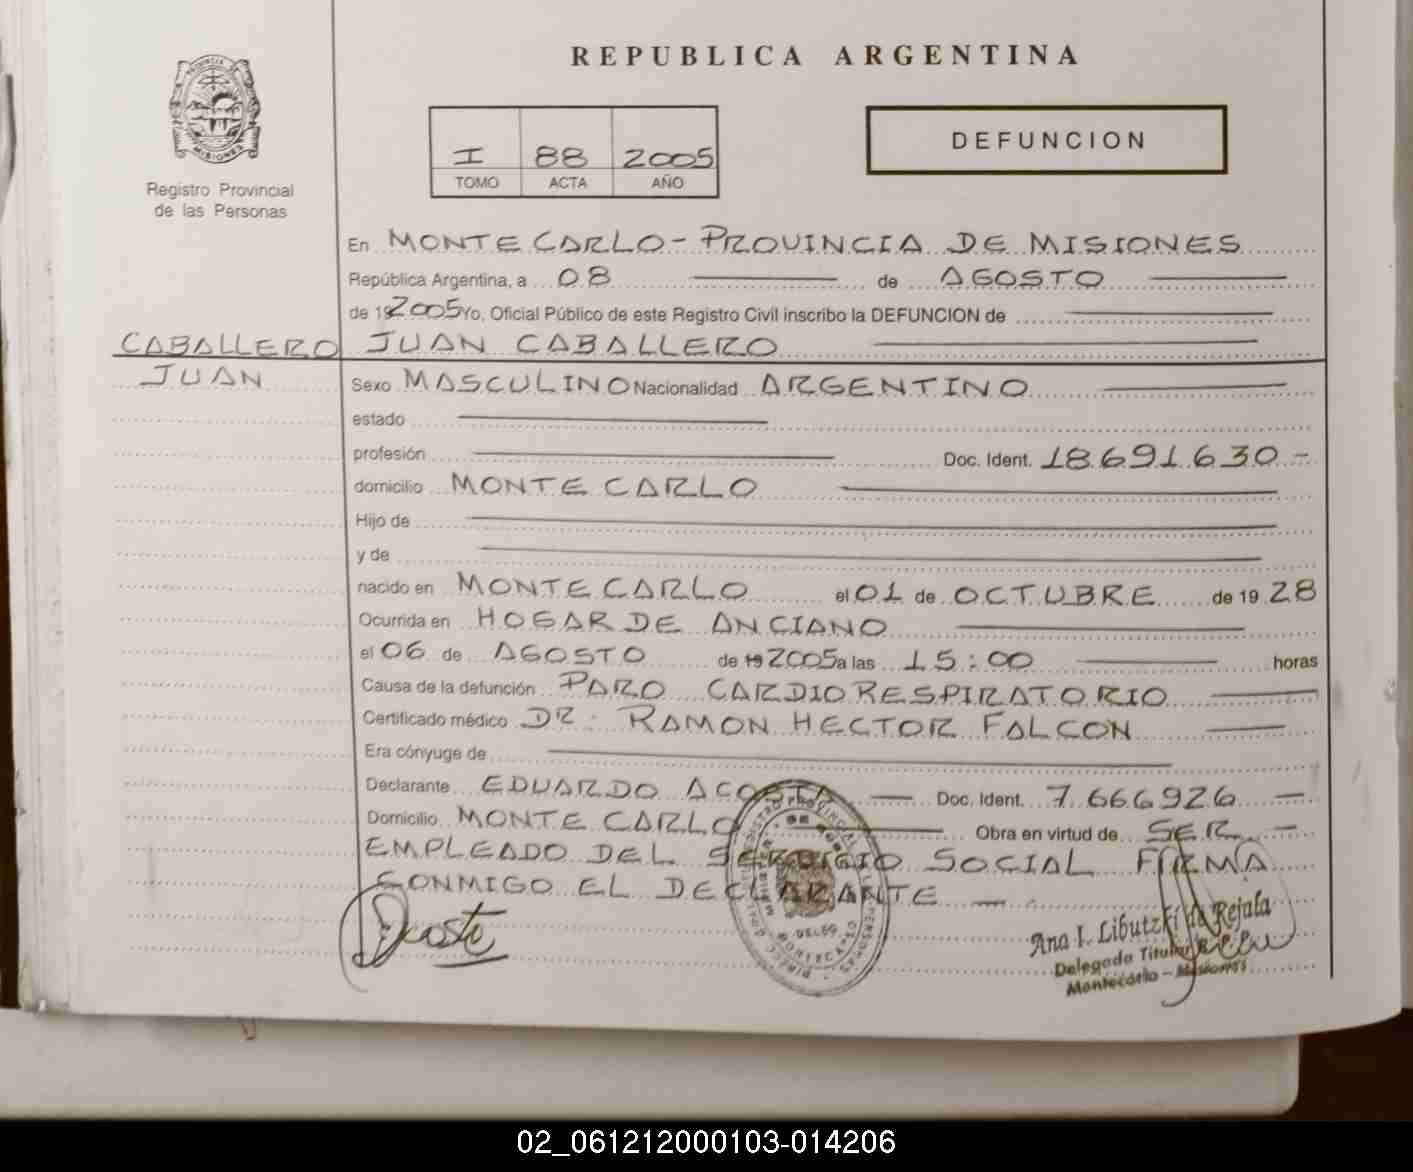 REPUBLICA ARGENTINA
PROVINCIA DE MISIONES
Registro Provincial
de las Personas
I 88 2005
TOMO ACTA AÑO
DEFUNCION
En MONTE CARLO - PROVINCIA DE MISIONES
República Argentina, a 08 de AGOSTO
de 19 2005 Yo, Oficial Público de este Registro Civil inscribo la DEFUNCION de
CABALLERO JUAN CABALLERO
JUAN
Sexo MASCULINO Nacionalidad ARGENTINO
estado
profesión Doc. Ident. 18.691.630 -
domicilio MONTE CARLO
Hijo de
y de
nacido en MONTE CARLO el 01 de OCTUBRE de 19 28
Ocurrida en HOGAR DE ANCIANO
el 06 de AGOSTO de 19 2005 a las 15:00 horas
Causa de la defunción PARO CARDIORESPIRATORIO
Certificado médico DR. RAMON HECTOR FALCON
Era cónyuge de
Declarante EDUARDO ACOSTA - Doc. Ident. 7.666926 -
Domicilio MONTE CARLO Obra en virtud de SER -
EMPLEADO DEL SERVICIO SOCIAL FIRMA
CONMIGO EL DECLARANTE -
Ana I. Libutzki de Rejala
Delegada Titular
Montecarlo - Misiones
02_061212000103-014206